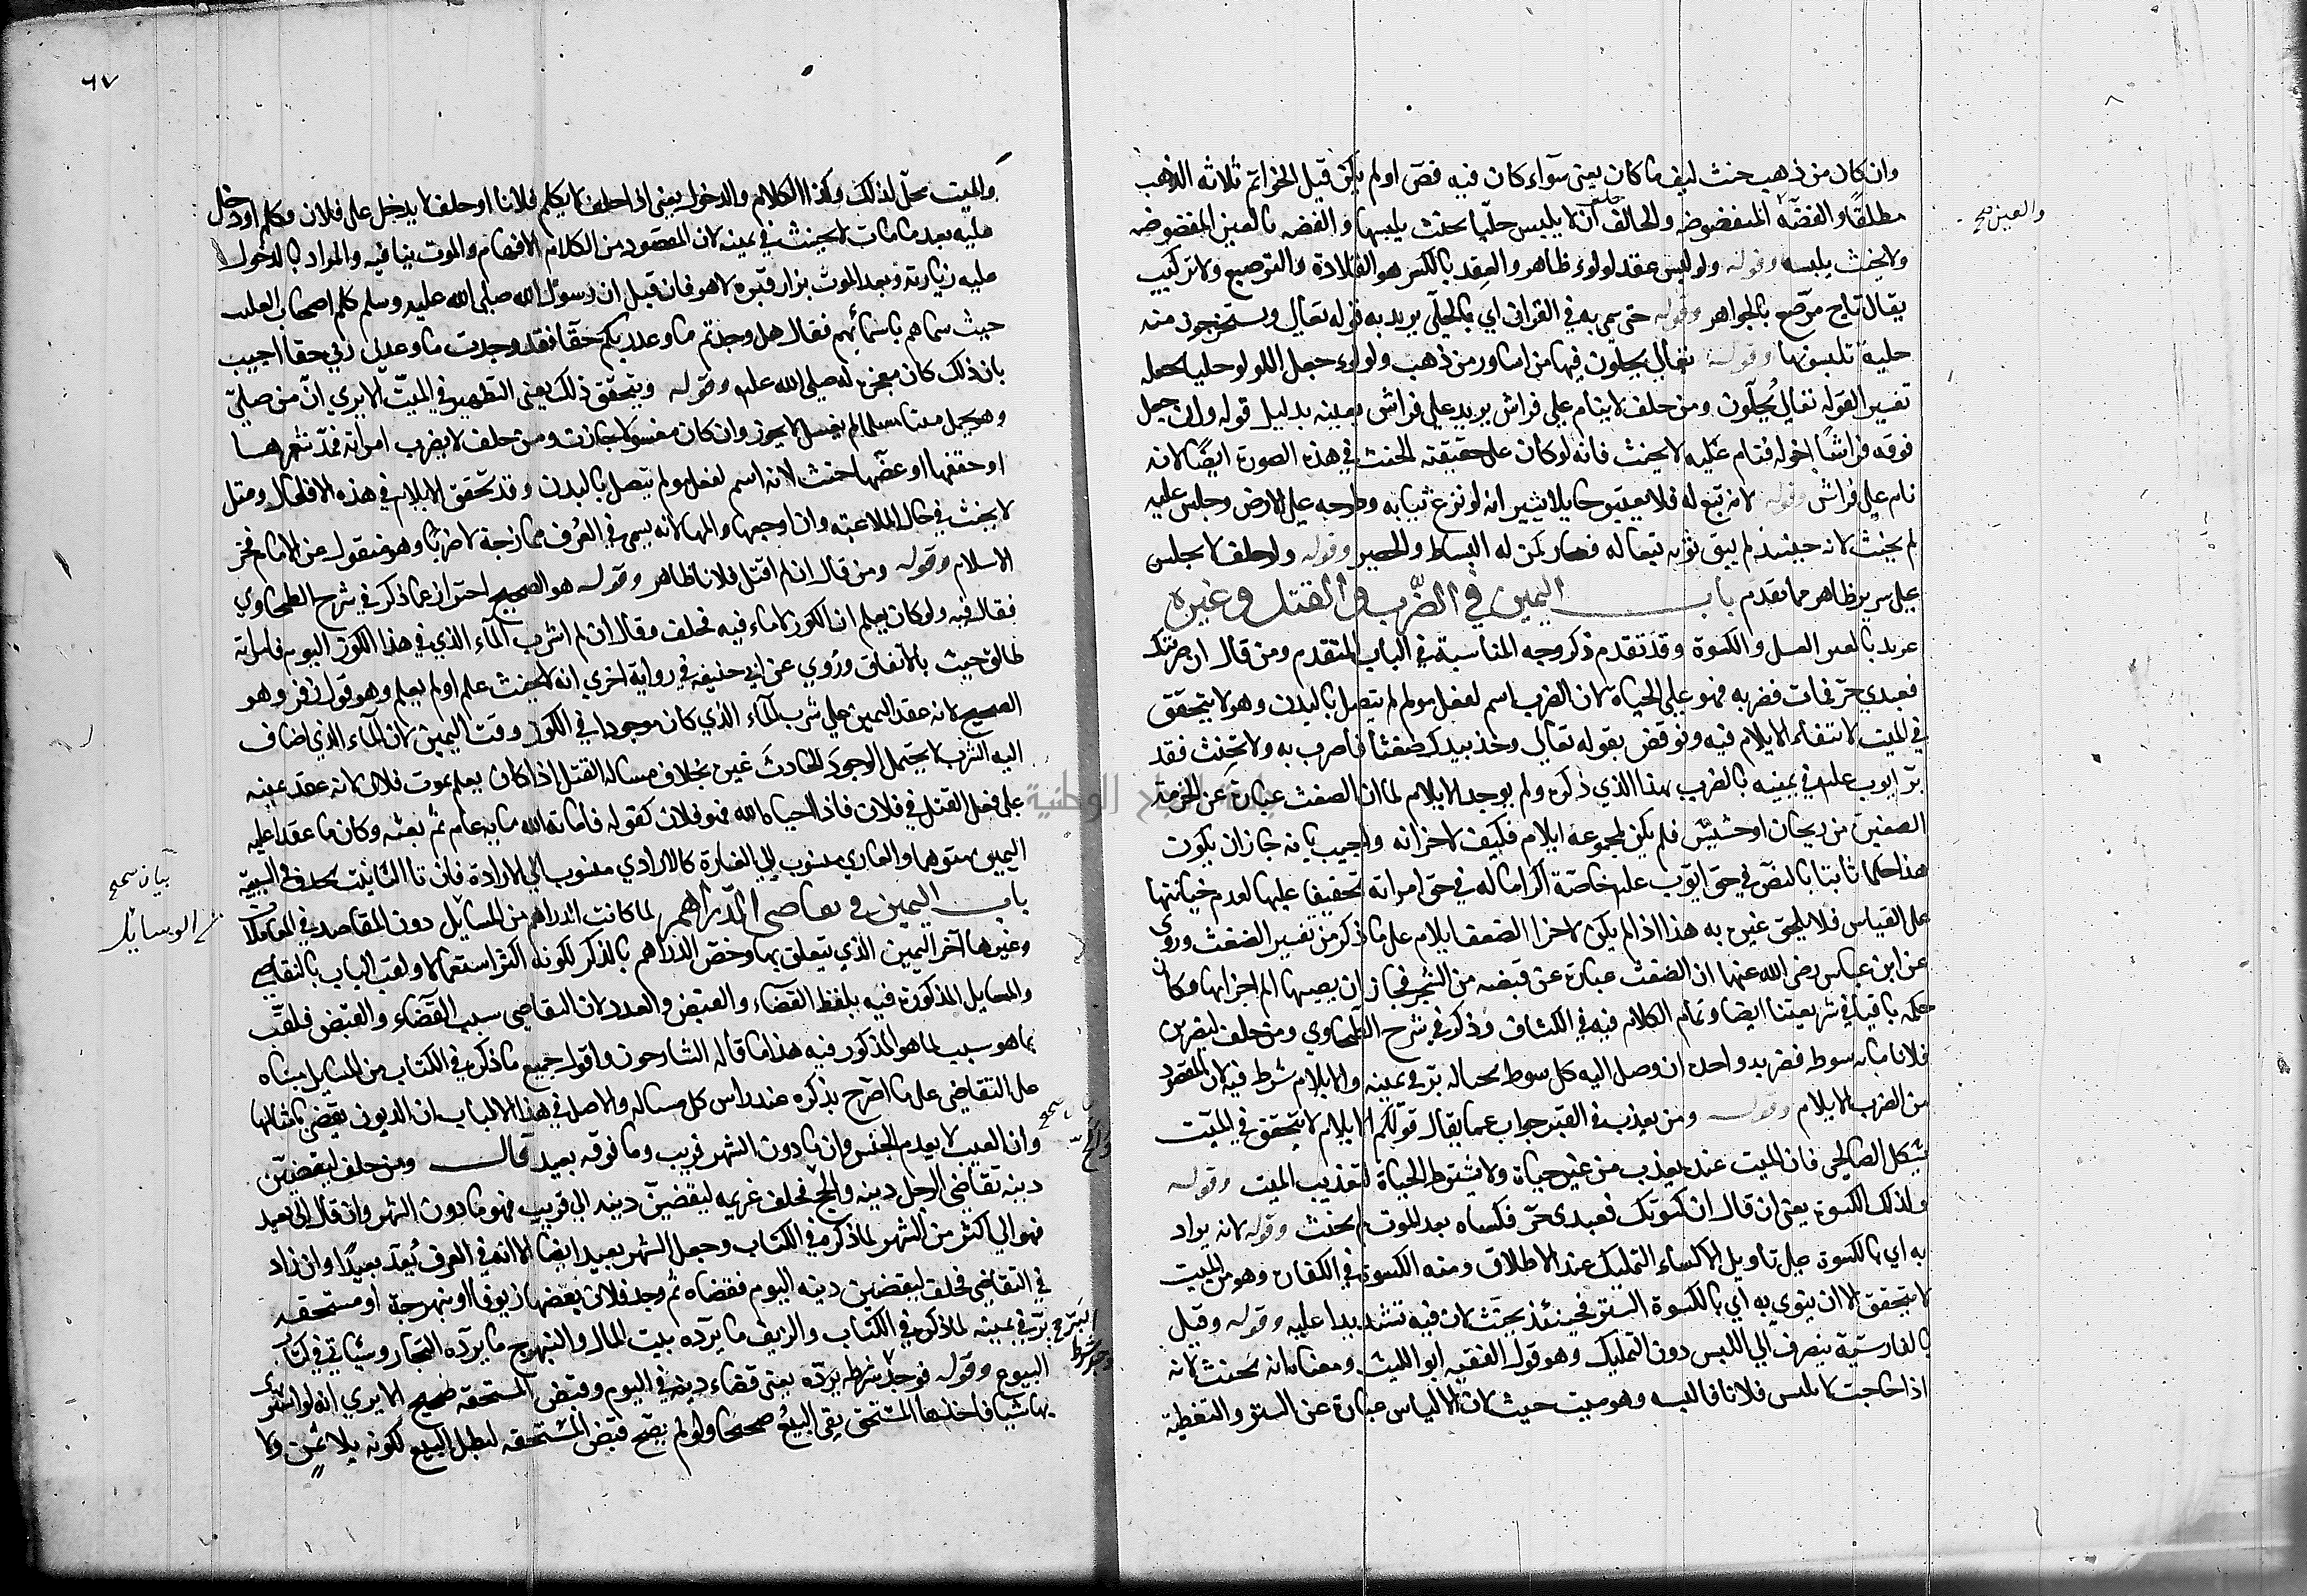 وان كان من ذهب حنث كيف ما كان يعني سوآء كان فيه فص او لم يكن قيل الخواتم ثلاثة الذهب
مطلقا والفضة المفضوضة والحالف ان لا يلبس حليا يحنث بلبسها والفضة الغير المفضوضة
والغير صح
ولا يحنث بلبسه وقوله ولو لبس عقد لولوء ظاهر والعقد بالكسر هو القلادة والترصيع والتركيب
يقال تاج مرصع بالجواهر وقوله حتى سمى به في القران اي بالحلي يريد به قوله تعالى وتستخرجون منه
حلية تلبسونها وقوله تعالى يحلون فيها من اساور من ذهب ولولوء جعل اللولو حليا بجعله
تفسيرا لقوله تعالى يحلون ومن حلف لا ينام على فراش يريد على فراش بعينه بدليل قوله وان جعل
فوقه فراشا اخر له فنام عليه لا يحنث فانه لو كان على حقيقته لحنث في هذه الصورة ايضا لانه
نام على فراش وقوله لانه تبع له فلا يعتبر حايلا يشير انه لو نزع ثيابه وطرحه على الارض وجلس عليه
لم يحنث لانه حينئذ لم يبق ثوبه تبعا له فصار كمن له البساط والحصير وقوله ولو حلف لا يجلس
على سرير ظاهر مما تقدم باب اليمين في الضرب والقتل وغيره
يريد بالغير الغسل والكسوة وقد تقدم ذكر وجه المناسبة في الباب المتقدم ومن قال ان ضربتك
فعبدي حر فمات فضربه فهو على الحياة لان الضرب اسم لفعل مولم يتصل بالبدن وهو لا يتحقق
في الميت لانتفاء الايلام فيه ونوقض بقوله تعالى وخذ بيدك ضغثا فاضرب به ولا تحنث فقد
بر ايوب عليه في يمينه بالضرب بهذا الذي ذكره ولم يوجد الايلام لما ان الضغث عبارة عن الحزمة
الصغيرة من ريحان او حشيش فلم يكن لمجموعه ايلام فكيف لاجزائه واجيب بانه جاز ان يكون
هذا حكما ثابتا بالنص في حق ايوب عليه خاصة اكراما له في حق امراته تخفيفا عليها لعدم خيانتها
على القياس فلا يلحق غيره به هذا اذا لم يكن لاجزا الضغث ايلام على ما ذكر من تفسير الضغث وروى
عن ابن عباس رضى الله عنهما ان الضغث عبارة عن قبضه من الشجر فجاز ان يصيبها الم اجزائها فكان
حكمه باقيا في شريعتنا ايضا وتمام الكلام فيه في الكشاف وذكر في شرح الطحاوي ومن حلف ليضربن
فلانا مائة سوط فضربه بواحدة ان وصل اليه كل سوط بحياله بر في يمينه والايلام شرط فيه لان المقصود
من الضرب الايلام وقوله ومن يعذب في القبر جواب عما يقال قولكم الايلام لا يتحقق في الميت
يشكل فان الميت عنده يعذب من غير حياة ولا يشترط الحياة لتعذيب الميت وقوله
وكذلك الكسوة يعني ان قال ان كسوتك فعبدى حر فكساه بعد الموت لم يحنث وقوله لانه يراد
به اي بالكسوة على تاويل الاكساء التمليك عند الاطلاق ومنه الكسوة في الكفارة وهو من الميت
لا يتحقق الا ان ينوي به اي بالكسوة الستر فحينئذ يحنث لان فيه تشديدا عليه وقوله وقيل
بالفارسية ينصرف الى اللبس دون التمليك وهو قول الفقيه ابو الليث ومعناه انه يحنث لانه
اذا لا يلبس فلانا فالبسه وهو ميت حنث لان الالباس عبارة عن الستر والتغطية
٦٧
والميت محل لذلك وكذا الكلام والدخول يعني اذا حلف لا يكلم فلانا او حلف لا يدخل على فلان فكلم او دخل
عليه بعد ما مات لا يحنث في يمينه لان المقصود من الكلام الافهام والموت ينافيه والمراد بالدخول
عليه زيارته وبعد الموت يزار قبره لا هو فان قيل ان رسول الله صلى الله عليه وسلم كلم اصحاب القليب
حيث سماهم باسمائهم فقال هل وجدتم ما وعد ربكم حقا فقد وجدت ما وعدني ربي حقا اجيب
بان ذلك كان معجزة له صلى الله عليه وقوله ويتحقق ذلك يعني التطهير في الميت الا يري ان من صلى
وهو يحمل ميتا مسلما لم يغسل لا يجوز وان كان مغسولا جازت ومن حلف لا يضرب امراته فمد شعرها
او خنقها او عضها حنث لانه اسم لفعل مولم يتصل بالبدن وقد تحقق الايلام في هذه الافعال وقيل
لا يحنث في حال الملاعبة وان اوجعها والمها لانه يسمى في العرف ممازحة لا ضربا وهو منقول عن الامام فخر
الاسلام وقوله ومن قال ان لم اقتل فلانا ظاهر وقوله هو الصحيح احتراز عما ذكر في شرح الطحاوي
فقال فيه ولو كان يعلم ان الكوز لا ماء فيه فحلف وقال ان لم اشرب المآء الذي في هذا الكوز اليوم فامراته
طالق حنث بالاتفاق وروي عن ابي حنيفه في رواية اخرى انه لا يحنث علم او لم يعلم وهو قول زفر وهو
الصحيح لانه عقد اليمين على شرب المآء الذي كان موجودا في الكوز وقت اليمين لان المآء الذي اضاف
اليه الشرب لا يحتمل الوجود لحادث غيره بخلاف مسالة القتل اذا كان يعلم بموت فلان لانه عقد يمينه
على فعل القتل في فلان فاذا احياه الله فهو فلان كقوله فاماته الله ماية عام ثم بعثه وكان ما عقد عليه
اليمين متوهما والعاري منسوب الى كالارادي منسوب الى الارادة فان تا التانيث تحذف في النسبة
باب اليمين في تقاضي الدراهم لما كانت الدراهم من المسايل دون المقاصد في المعاملات
بيان صح
صح الوسايل
وغيرها آخر اليمين الذي يتعلق بها وخص الدراهم بالذكر لكونه اكثر استعمالا ولقب الباب بالتقاضي
والمسايل المذكورة فيه بلفظ القضاء والقبض والعدد لان التقاضي سبب القضاء والقبض فلقب
بما هو سبب لما هو المذكور فيه هذا ما قاله الشارحون واقول جميع ما ذكره في الكتاب من المسايل مبناه
على التقاضي على ما اصرح بذكره عند راس كل مسالة والاصل في هذا الباب ان الديون يقضي بامثالها
وان العيب لا يعدم الجنس وان ما دون الشهر قريب وما فوقه بعيد قال ومن حلف ليقضين
دينه تقاضي الرجل دينه والح فحلف غريمه ليقضين دينه الى قريب فهو ما دون الشهر وان قال الى بعيد
والح صح
فهو الى اكثر من الشهر لما ذكر في الكتاب وجعل الشهر بعيد ايضا لانه في العرف يعد بعيدا وان زاد
في التقاضي فحلف ليقضين دينه اليوم فقضاه ثم وجد فلان بعضها زيوفا او نبهرجة او مستحقة
بر في يمينه لما ذكره في الكتاب والزيف ما يرده بيت المال والنبهرج ما يرده التجار وسياتي في كتاب
البيوع وقوله فوجد شرط بره يعني قضاء دينه في اليوم وقبض المستحقة صحيح الا يري انه لو اشترى
بها شيا فاخذها المستحق بقي البيع صحيحا ولو لم يصح قبض المستحقه لبطل البيع لكونه بلا ثمن ولا